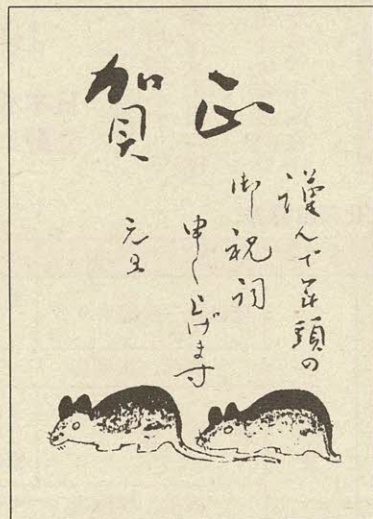 賀正
謹んで年頭の
御祝詞
申し上げます
元旦